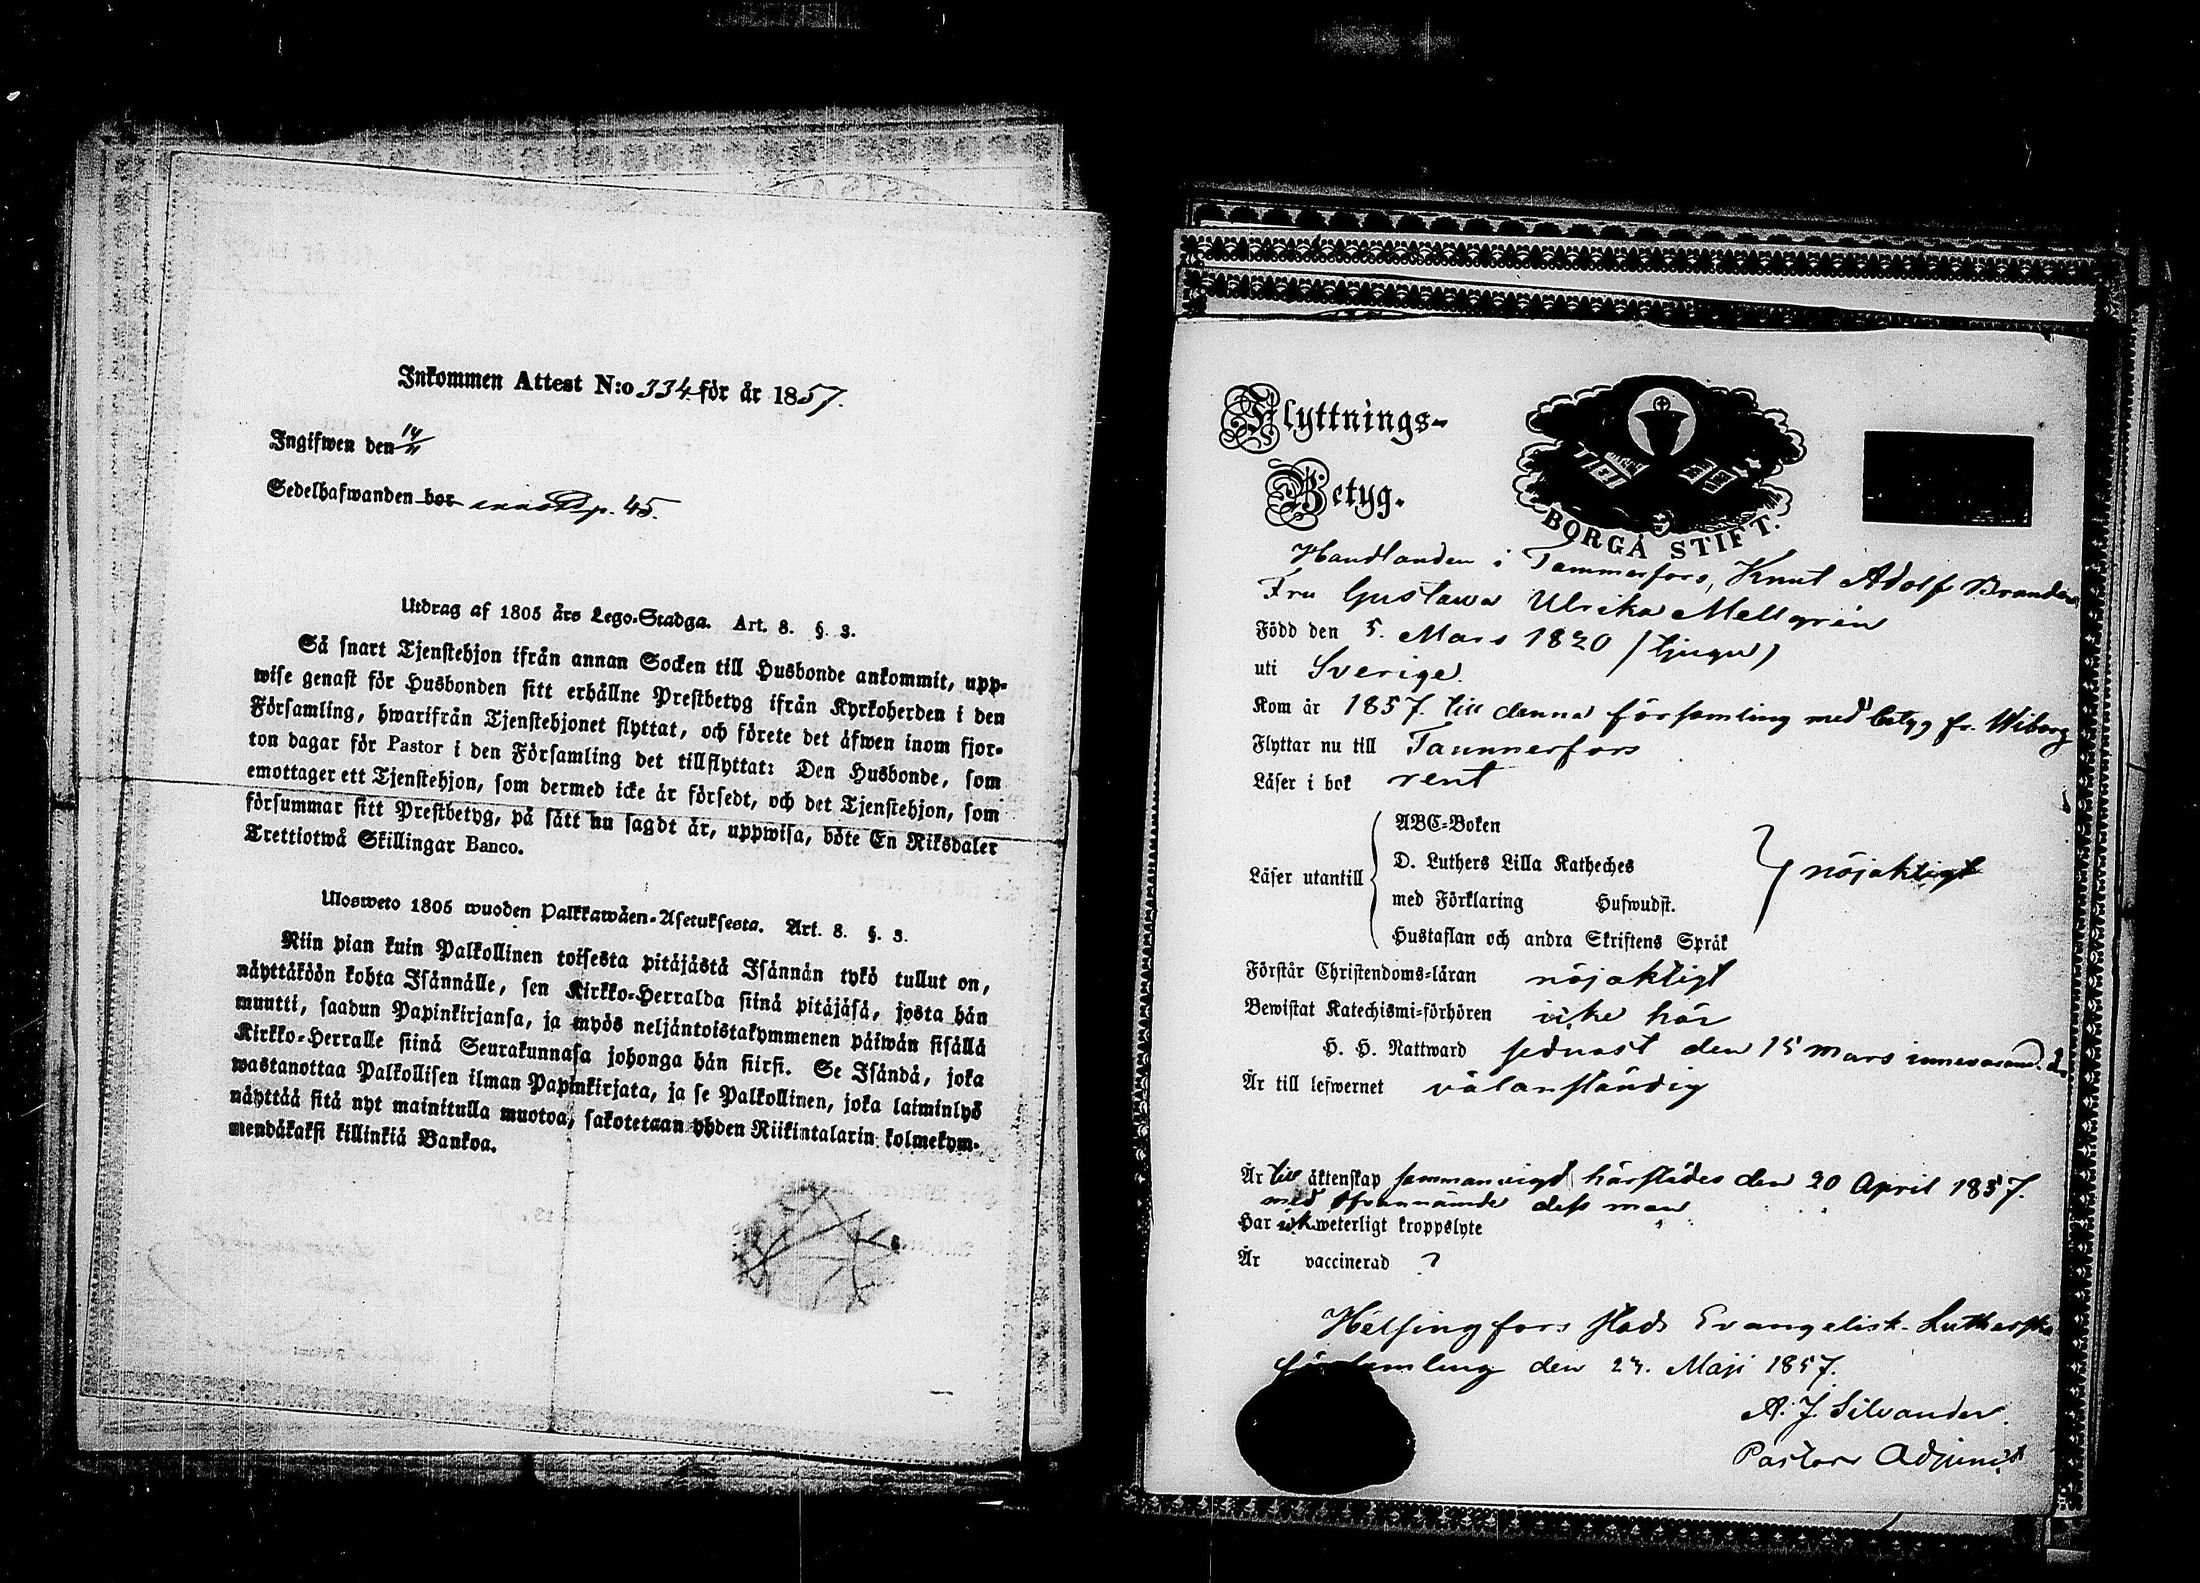 Inkommen Attest N:o 334 för år 1857.
Ingifwen den 14/11
Sedelhafwanden bor p. 45.
Utdrag af 1805 års Lego-Stadga. Art. 8. §. 3.
Så snart Tjenstehjon ifrån annan Socken till Husbonde ankommit, upp-
wise genast för Husbonden sitt erhållne Prestbetyg ifrån Kyrkoherden i den
Församling, hwarifrån Tjenstehjonet flyttat, och förete det äfwen inom fjor-
ton dagar för Pastor i den Församling det tillflyttat: Den Husbonde, som
emottager ett Tjenstehjon, som dermed icke är försedt, och det Tjenstehjon, som
försummar sitt Prestbetyg, på sätt nu sagdt är, uppwisa, böte En Riksdaler
Trettiotwå Skillingar Banco.
Ulosweto 1805 wuoden Palkkawäen-Asetuksesta. Art. 8. §. 3.
Niin pian kuin Palkollinen toisesta pitäjästä Isännän tykö tullut on,
näyttäköön kohta Isännälle, sen Kirkko-Herralda siinä pitäjäsä, josta hän
muutti, saadun Papinkirjansa, ja myös neljäntoistakymmenen päiwän sisällä
Kirkko-Herralle siinä Seurakunnasa johonga hän siirsi. Se Isändä, joka
wastanottaa Palkollisen ilman Papinkirjata, ja se Palkollinen, joka laiminlyö
näyttää sitä nyt mainitulla muotoa, sakotetaan yhden Riikintalarin kolmekym-
mendäkaksi killinkiä Bankoa.
Flyttnings-
Betyg.
BORGÅ STIFT.
Handlanden i Tammerfors, Knut Adolf Branders
Fru Gustawa Ulrika Mellgrén
Född den 5. Mars 1820 /tjugu/
uti Sverige.
Kom år 1857. till denna församling med betyg fr. Wiborg
Flyttar nu till Tammerfors
Läser i bok rent
Läser utantill
ABC-Boken
D. Luthers Lilla Katheches
med Förklaring Hufwudst.
Hustaflan och andra Skriftens Språk
nöjaktigt
Förstår Christendoms-läran nöjaktigt
Bewistat Katechismi-förhören icke här
H. H. Nattward sednast den 15 mars innevarand.
Är till lefwernet välanständig
Är till äktenskap sammanvigd härstädes den 20 April 1857.
med ofvannämde dess man
Har ick weterligt kroppslyte
Är vaccinerad ?
Helsingfors stads Evangelisk-Lutherska
församling den 23. Maji 1857.
A. J. Silvander.
Pastors Adjunct